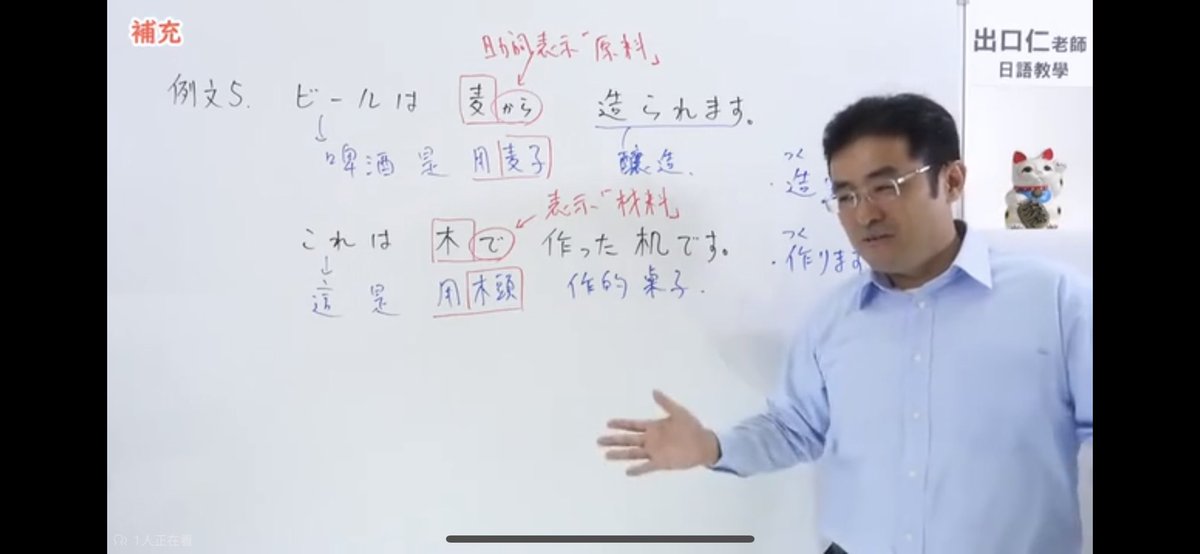 補充
出口仁老師
日語教學
助詞表示「原料」
例文5. ビールは 麦から 造られます。
啤酒是 用麦子 釀造.
つく
造
表示「材料」
これは 木で 作った机です。
つく
作ります
這是 用木頭 作的桌子.
1人正在看